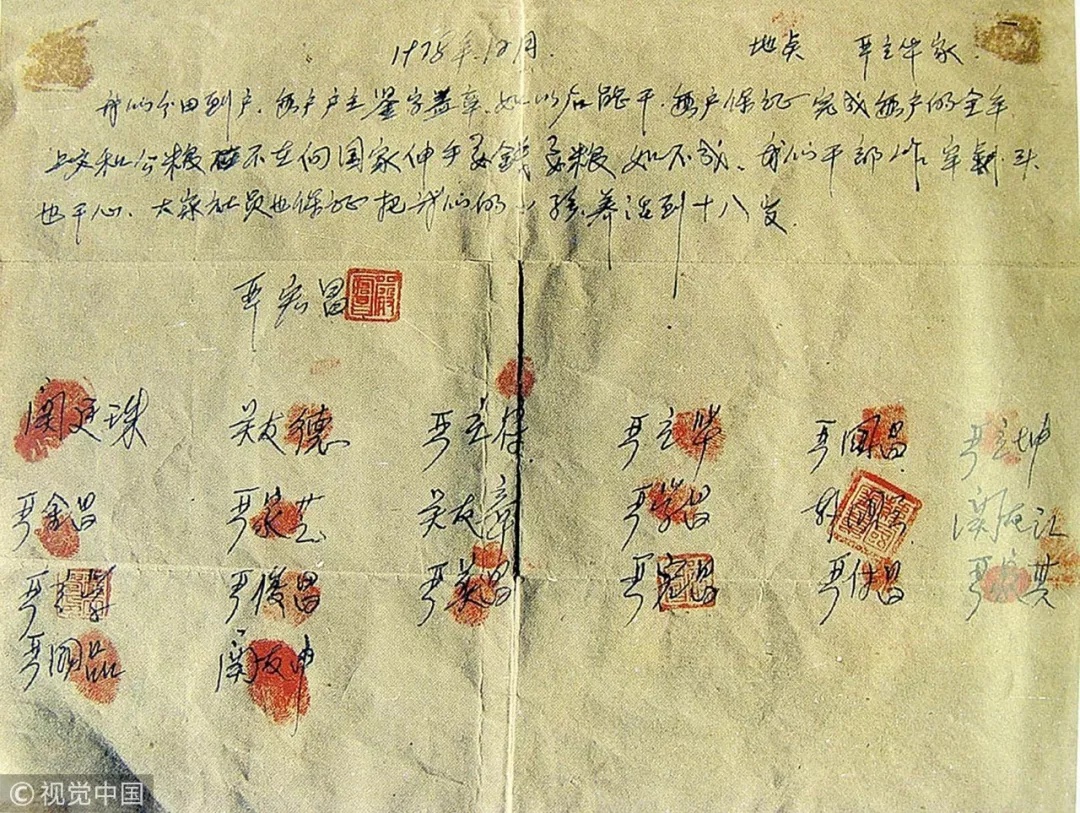 1978年12月. 地点 严立华家.
我们分田到户,每户户主鉴字盖章,如以后能干,每户保证完成每户的全年
上交和公粮不在向国家伸手要钱要粮如不成,我们干部作牢剎头
也干心,大家社员也保证把我们的小孩养活到十八岁.
严宏昌
关廷珠 关友德 严立符 严立华 严国昌 严立坤
严金昌 严家芝 关友章 严学昌 韩国云 关友江
严立学 严俊昌 严美昌 严宏昌 严付昌 严家其
严国品 关友申
©视觉中国